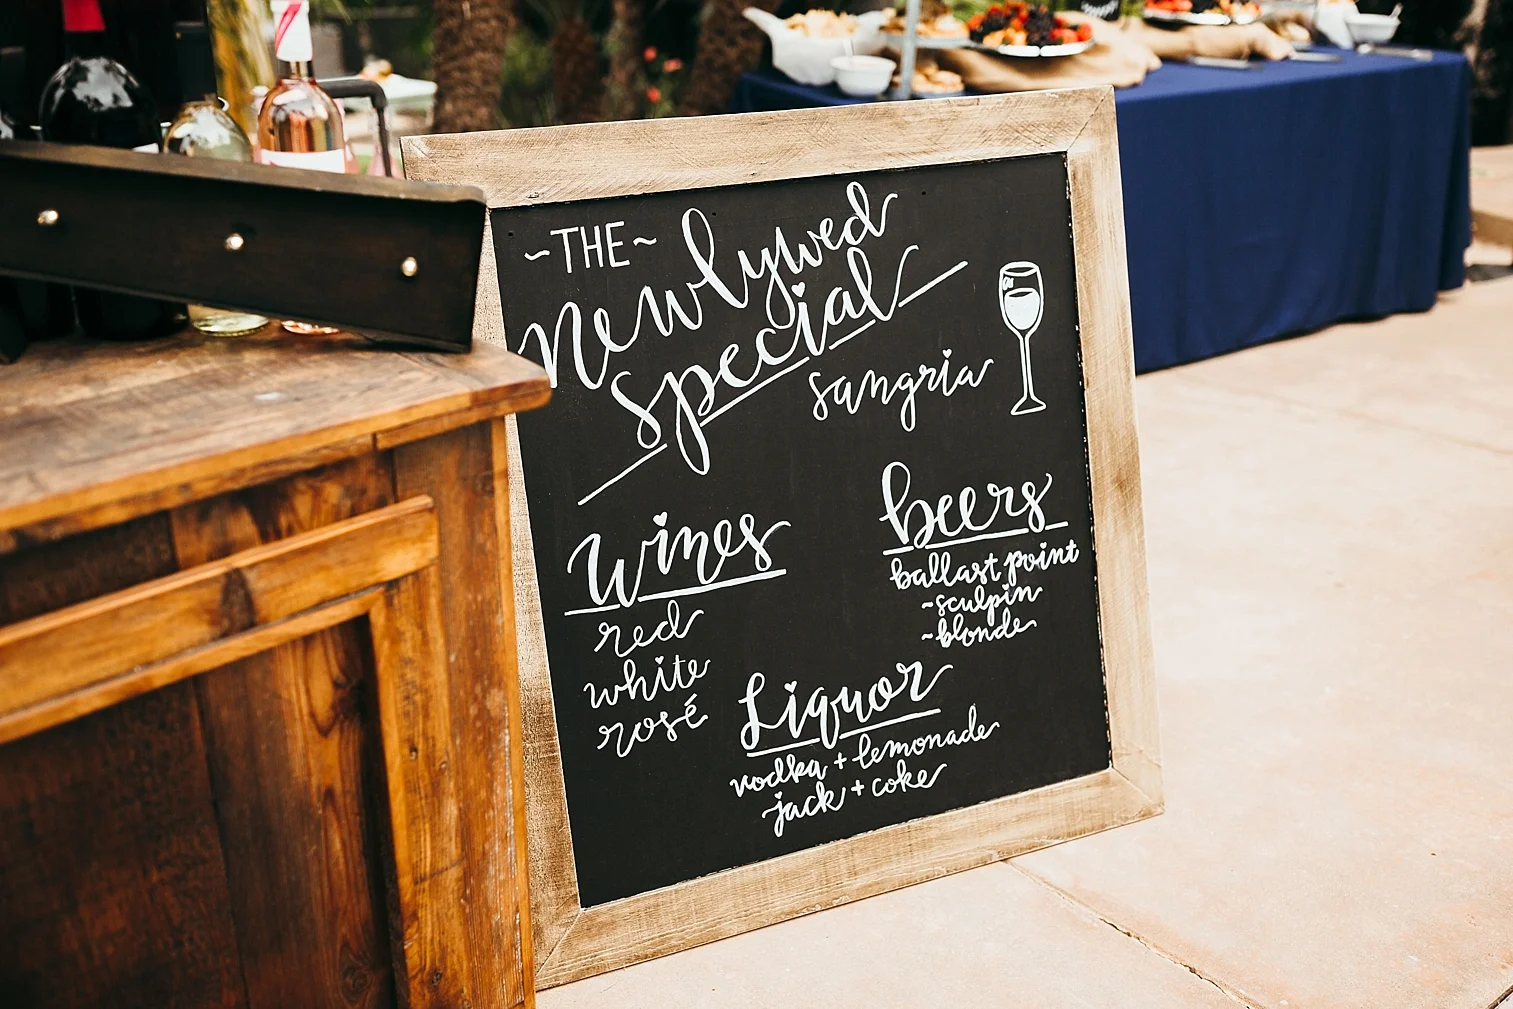 ~THE~
Newlywed
Special
sangria
Wines
red
white
rosé
beers
ballast point
~sculpin
~blonde
Liquor
vodka + lemonade
jack + coke